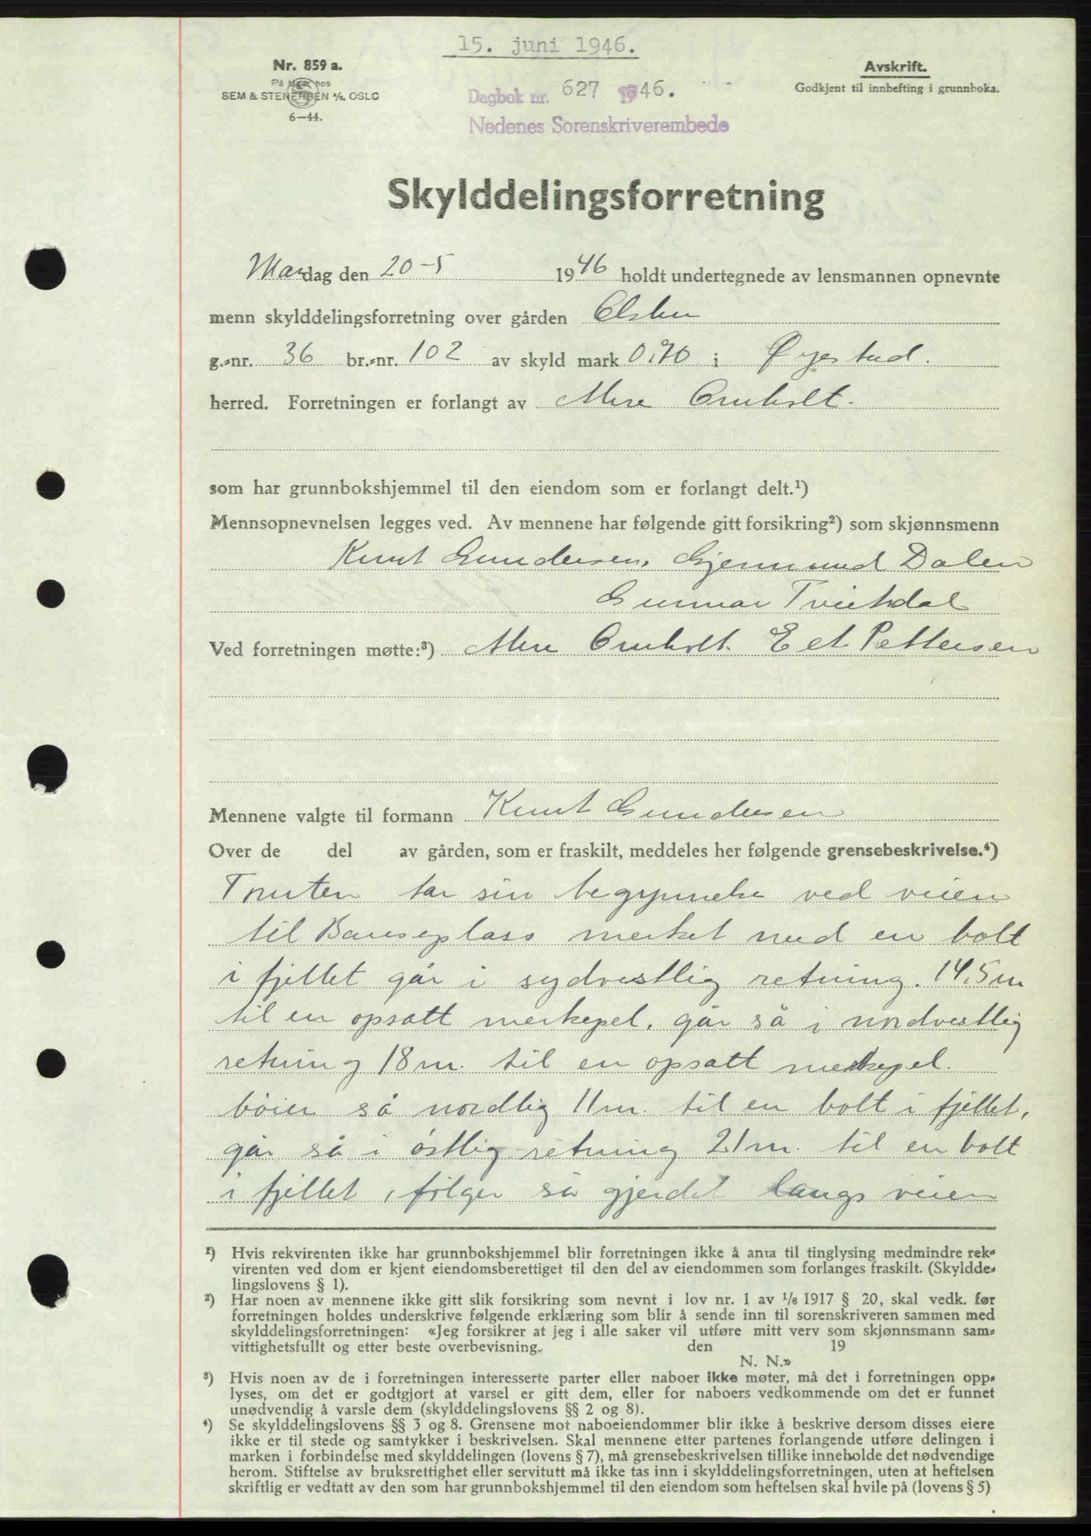 15. juni 1946.
Nr. 859 a.
På lager hos
SEM & STENERSEN A/S. OSLO
6—44.
Avskrift.
Godkjent til innhefting i grunnboka.
Dagbok nr. 627 1946.
Nedenes Sorenskriverembede
Skylddelingsforretning
Mandag den 20-5 1946 holdt undertegnede av lensmannen opnevnte
menn skylddelingsforretning over gården
g.-nr. 36 br.-nr. 102 av skyld mark 0,70 i Øyestad.
herred. Forretningen er forlangt av Omholt.
som har grunnbokshjemmel til den eiendom som er forlangt delt.¹)
Mennsopnevnelsen legges ved. Av mennene har følgende gitt forsikring²) som skjønnsmenn
Knut Gundersen, Gjermund Dalen
Gunnar Tveitdal
Ved forretningen møtte:³) Omholt. Pettersen
Mennene valgte til formann Knut Gundersen
Over de del av gården, som er fraskilt, meddeles her følgende grensebeskrivelse.⁴)
Tomten tar sin begynnelse ved veien
til merket med en bolt
i fjellet går i sydvestlig retning. 14,5 m.
til en opsatt merkepel, går så i nordvestlig
retning 18 m. til en opsatt merkepel.
bøier så nordlig 11 m. til en bolt i fjellet,
går så i østlig retning 21 m. til en bolt
i fjellet, følger så gjerdet langs veien
¹) Hvis rekvirenten ikke har grunnbokshjemmel blir forretningen ikke å anta til tinglysing medmindre rek-
virenten ved dom er kjent eiendomsberettiget til den del av eiendommen som forlanges fraskilt. (Skyldde-
lingslovens § 1).
²) Har noen av mennene ikke gitt slik forsikring som nevnt i lov nr. 1 av 1/6 1917 § 20, skal vedk. før
forretningen holdes underskrive følgende erklæring som blir å sende inn til sorenskriveren sammen med
skylddelingsforretningen: «Jeg forsikrer at jeg i alle saker vil utføre mitt verv som skjønnsmann sam-
vittighetsfullt og etter beste overbevisning. den 19
N. N.»
³) Hvis noen av de i forretningen interesserte parter eller naboer ikke møter, må det i forretningen opp-
lyses, om det er godtgjort at varsel er gitt dem, eller for naboers vedkommende om det er funnet
unødvendig å varsle dem (skylddelingslovens §§ 2 og 8).
⁴) Se skylddelingslovens §§ 3 og 8. Grensene mot naboeiendommer blir ikke å beskrive dersom disses eiere
ikke er til stede og samtykker i beskrivelsen. Skal mennene etter partenes forlangende utføre delingen i
marken i forbindelse med skylddelingen (lovens § 7), må grensebeskrivelsen tillike inneholde det nødvendige
herom. Stiftelse av bruksrettighet eller servitutt må ikke tas inn i skylddelingsforretningen, uten at heftelsen
skriftlig er vedtatt av den som har grunnbokshjemmel til den eiendom som heftelsen skal hvile på (lovens § 5)